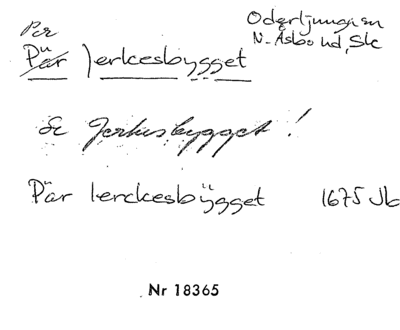 Oderljunga sn
N. Åsbo hd, Sk
Per
Pär Jerkesbygget
Se Jerkesbygget!
Pär Ierckesbÿgget 1675 Jb
Nr 18365